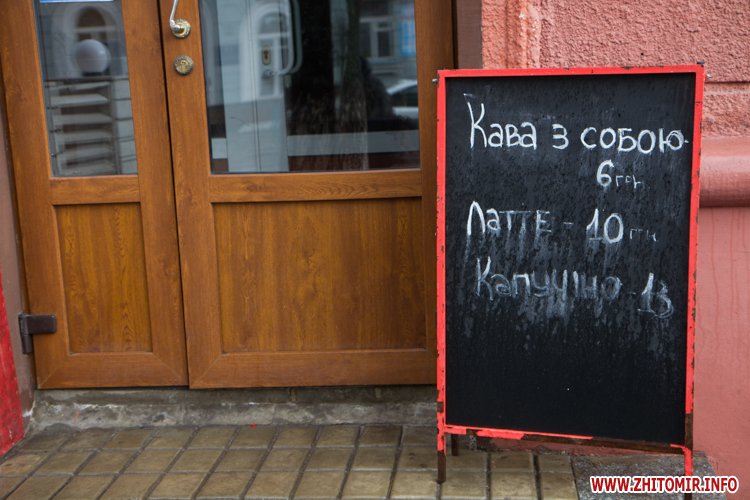 Кава з собою-
6грн
Латте - 10грн
Капучіно - 13
WWW.ZHITOMIR.INFO